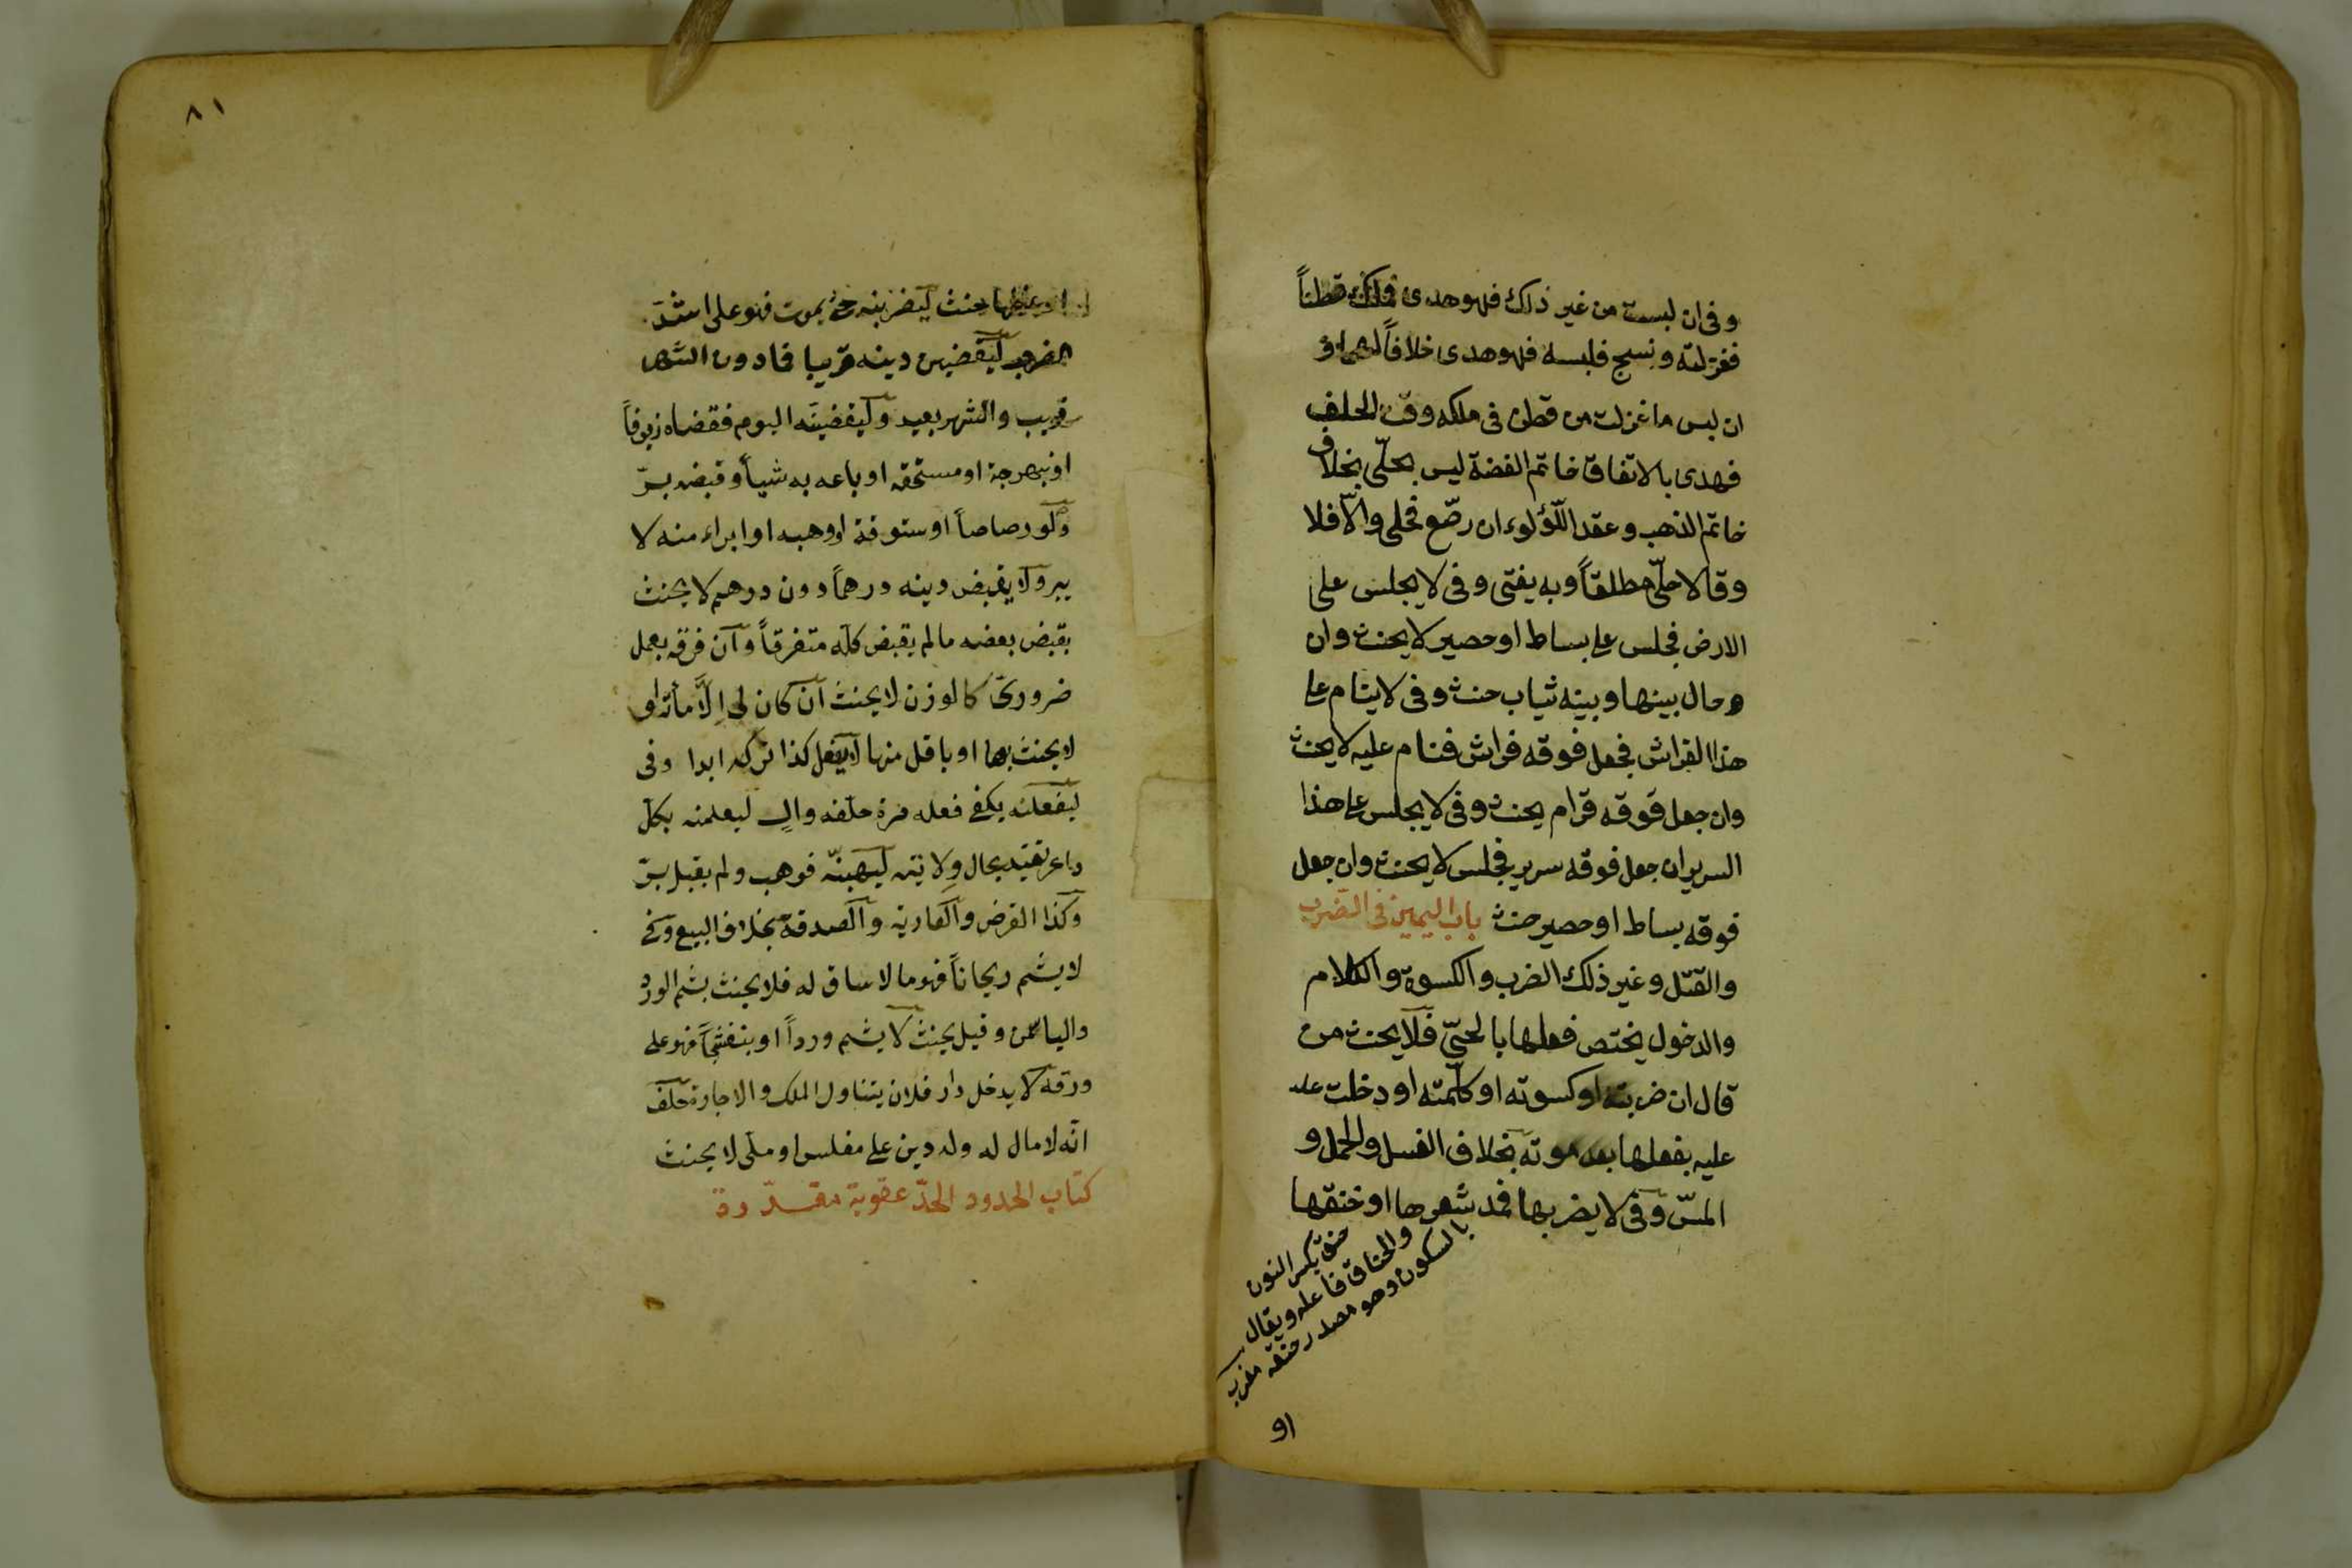 وفى ان لبست من غير ذلك فهو هدى فملك قطناً
فغزلته ونسج فلبسه فهو هدى خلافاً لهما و
ان لبس ما غزلت من قطن فى ملكه وقت الحلف
فهدى بالاتفاق خاتم الفضة ليس بحلّى بخلاف
خاتم الذهب وعقد اللّؤلوء ان رصّع فحلى والّا فلا
وقالا حلّى مطلقاً وبه يفتى وفى لا يجلس على
الارض فجلس على بساط او حصير لا يحنث وان
وحال بينها وبينه ثياب حنث وفى لا ينام على
هذا الفراش فجعل فوقه فراش فنام عليه لا يحنث
وان جعل فوقه قرام يحنث وفى لا يجلس على هذا
السرير ان جعل فوقه سرير فجلس لا يحنث وان جعل
فوقه بساط او حصير حنث باب اليمين فى الضرب
والقتل وغير ذلك الضرب والكسوة والكلام
والدخول يختص فعلها بالحىّ فلا يحنث من
قال ان ضربته او كسوته او كلّمته او دخلت عليه
عليه بفعلها بعد موته بخلاف الغسل والحمل و
المسّ وفى لا يضربها فمد شعرها او خنقها
خنق بكسر النون
والخناق فاعله ويقال
بالسكون وهو مصدر خنقه مغرب
او
٨١
او عضها حنث ليضربنه حتى يموت فهو على اشد
الضرب ليقضين دينه قريبا فما دون الشهر
قريب والشهر بعيد وليقضينه اليوم فقضاه زيوفاً
او نبهرجة او مستحقة او باعه به شيأ وقبضه برّ
ولو رصاصاً او ستوقة او وهبه او ابراء منه لا
يبر ولا يقبض دينه درهماً دون درهم لا يحنث
بقبض بعضه ما لم يقبض كلّه متفرقاً وان فرقه بعمل
ضرورى كالوزن لا يحنث ان كان لى الّا مأة او
لا يحنث بها او باقل منها لا يفعل كذا تركه ابدا وفى
ليفعلنه يكفى فعله مرة حلّفه والٍ ليعلمنه بكل
داعر تقيد بحال ولايته ليهبنّه فوهب ولم يقبل برّ
وكذا القرض والعارية والصدقة بخلاف البيع وفى
لا يشم ريحاناً فهو ما لا ساق له فلا يحنث بشم الورد
والياسمن وقيل يحنث لا يشم ورداً او بنفشجاً فهو على
ورقه لا يدخل دار فلان يتناول الملك والاجارة حلف
انّه لا مال له وله دين على مفلس او ملّى لا يحنث
كتاب الحدود الحدّ عقوبة مقدّرة